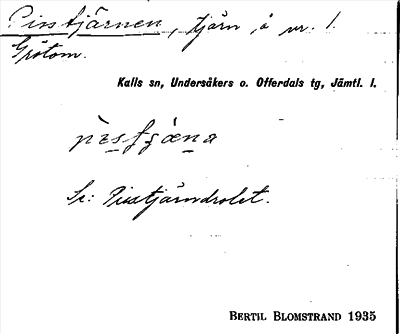 Pisstjärnen, tjärn, å nr. 1.
Grötom.
Kalls sn, Undersåkers o. Offerdals tg, Jämtl. l.
Se: Pisstjärndrolet.
BERTIL BLOMSTRAND 1935